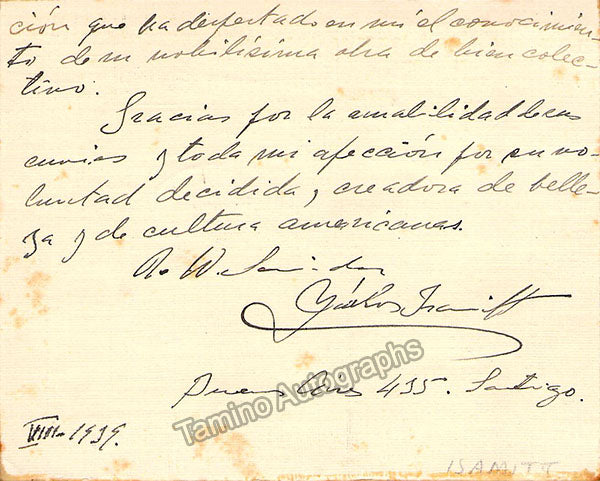 ción que ha despertado en mí el conocimien-
to de su nobilísima obra de bien colec-
tivo.
Gracias por la amabilidad de sus
envíos y toda mi afección por su vo-
luntad decidida y creadora de belle-
za y de cultura americanas.
Carlos Isamitt
Buenos Aires 435. Santiago.
VIII-1939.
Tamino Autographs
ISAMITT